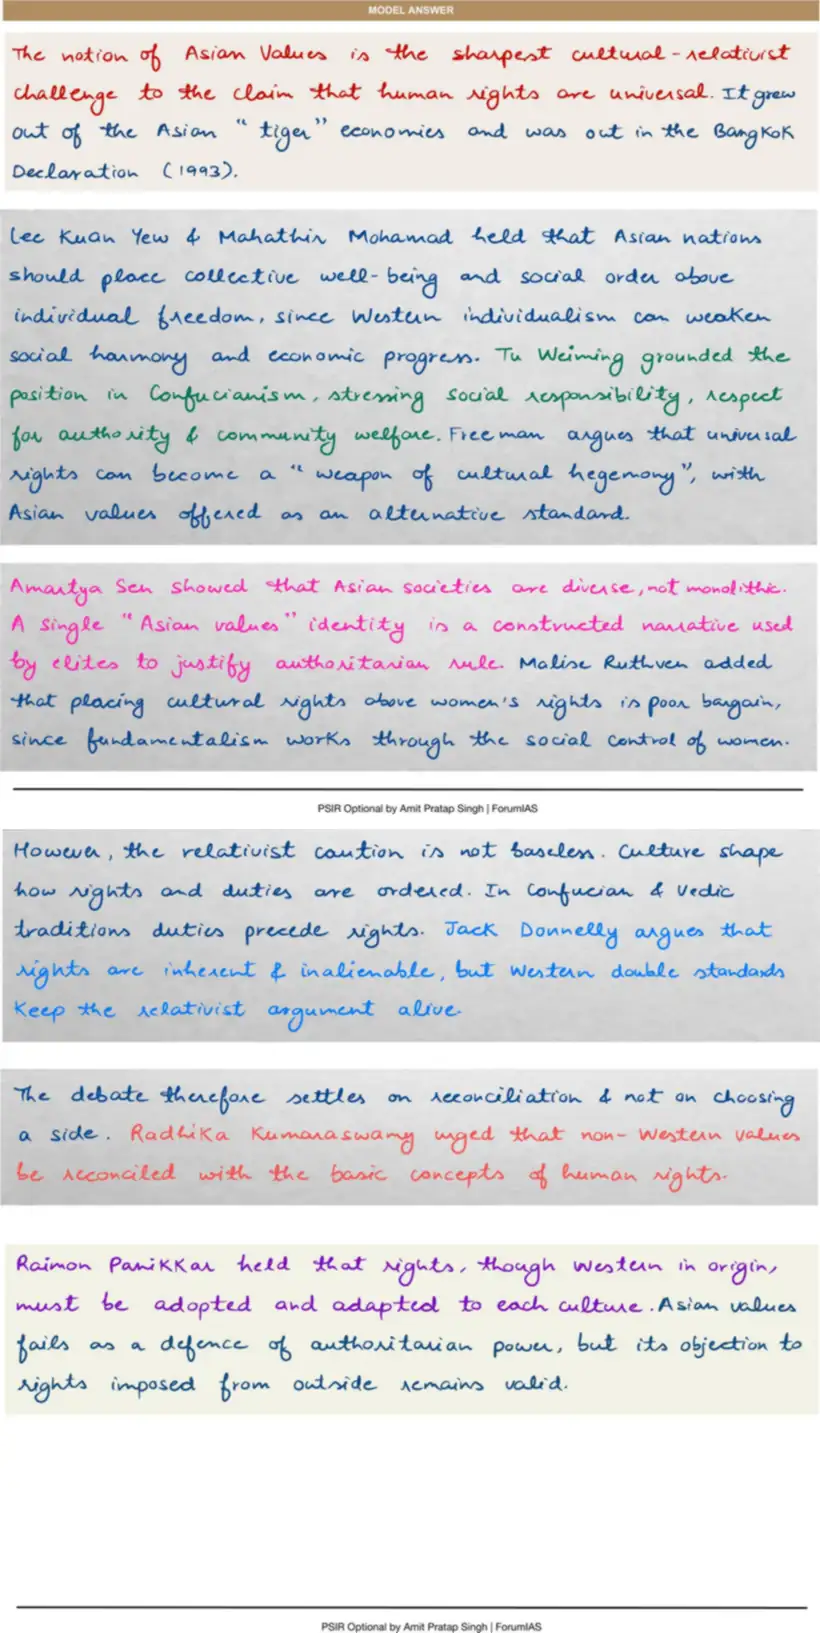 MODEL ANSWER
The notion of Asian Values is the sharpest cultural-relativist
challenge to the claim that human rights are universal. It grew
out of the Asian "tiger" economies and was out in the Bangkok
Declaration (1993).
Lee Kuan Yew & Mahathir Mohamad held that Asian nations
should place collective well-being and social order above
individual freedom, since Western individualism can weaken
social harmony and economic progress. Tu Weiming grounded the
position in Confucianism, stressing social responsibility, respect
for authority & community welfare. Freeman argues that universal
rights can become a "weapon of cultural hegemony", with
Asian values offered as an alternative standard.
Amartya Sen showed that Asian societies are diverse, not monolithic.
A single "Asian values" identity is a constructed narrative used
by elites to justify authoritarian rule. Malise Ruthven added
that placing cultural rights above women's rights is poor bargain,
since fundamentalism works through the social control of women.
PSIR Optional by Amit Pratap Singh | ForumIAS
However, the relativist caution is not baseless. Culture shape
how rights and duties are ordered. In Confucian & Vedic
traditions duties precede rights. Jack Donnelly argues that
rights are inherent & inalienable, but Western double standards
keep the relativist argument alive.
The debate therefore settles on reconciliation & not on choosing
a side. Radhika Kumaraswamy urged that non-Western values
be reconciled with the basic concepts of human rights.
Raimon Panikkar held that rights, though Western in origin,
must be adopted and adapted to each culture. Asian values
fails as a defence of authoritarian power, but its objection to
rights imposed from outside remains valid.
PSIR Optional by Amit Pratap Singh | ForumIAS